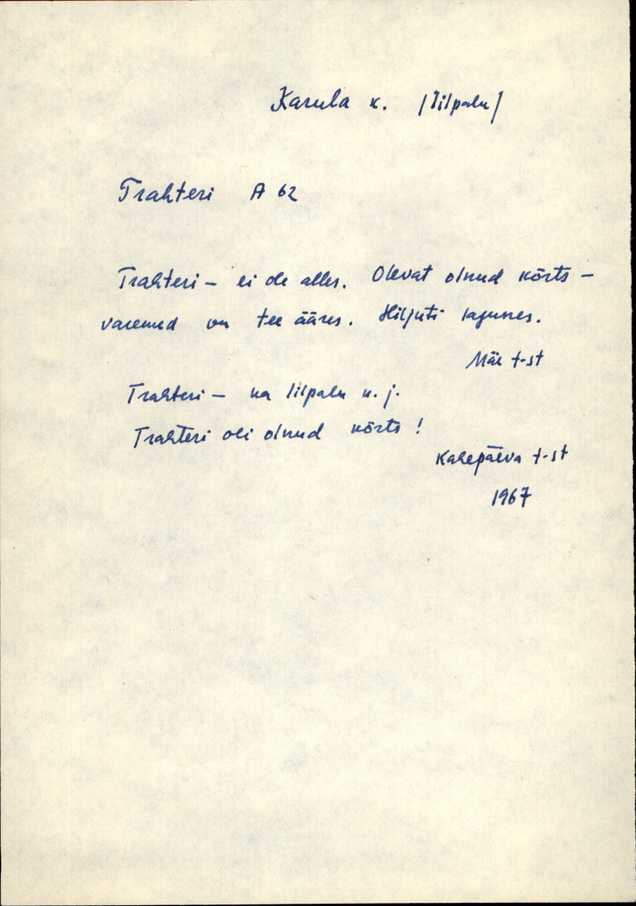 Karula k. /Iilpalu/
Trahteri A 62
Trahteri – ei ole alles. Olevat olnud kõrts –
varemed on tee ääres. Hiljuti lagunes.
Mäe t-st
Trahteri – ka Iilpalu k. j.
Trahteri oli olnud kõrts!
Kahepäeva t-st
1967